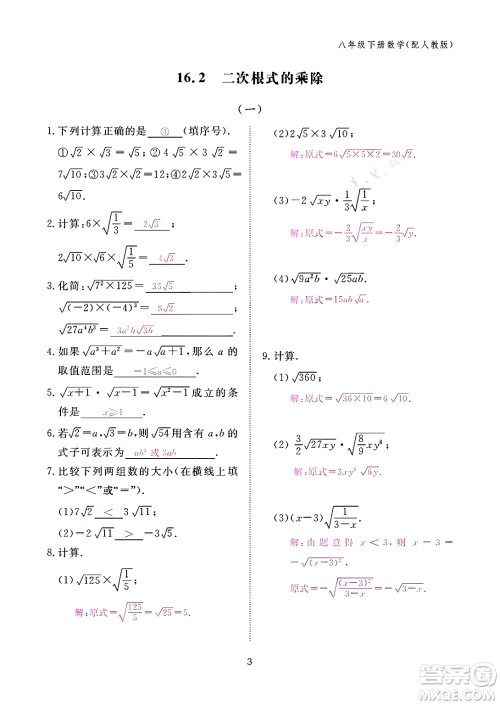 八年级下册数学(配人教版)
16.2 二次根式的乘除
(一)
1.下列计算正确的是 ① (填序号).
①√2×√3=√6;②2√2×3√3=
6√5;③5√2×2√3=
7√6;④√2×√5=√7.
2.计算:6×√(1/3)= 2√3 ;
2√5×√6×√(1/5)= 2√6 .
3.化简:√(7²×125)= 35√5 ;
√((-2)×(-4)³)= 8√2 ;
√(27a⁴b³)= 3a²b√(3b) .
4.如果√(a³+a²)=-a√(a+1),那么a的
取值范围是 -1≤a≤0 .
5.√(x+1)·√(x-1)=√(x²-1)成立的条
件是 x≥1 .
6.若√2=a,√3=b,则√54用含a,b的
式子可表示为 ab³或3ab .
7.比较下列两组数的大小(在横线上填
“>”“<”或“=”).
(1)7√2 < 3√11
(2)-2√11 < -√42
8.计算.
(1)√125×√(1/5);
解:原式=√(125/5)=√25=5.
(2)2√5×3√10;
解:原式=6√(5×5×2)=30√2.
(3)-2√(xy)·(1/3)√(1/x);
解:原式=-(2/3)√(xy/x)=-(2/3)√y.
(4)√(9a²b)·√(25ab);
解:原式=15ab√a.
9.计算.
(1)√360;
解:原式=√(36×10)=6√10.
(2)(3/2)√(27xy)·√((8/9)xy⁵);
解:原式=3xy³√6.
(3)(x-3)√(1/(3-x)).
解:由题意可得3-x>0,则x-3<0,
原式=-√((x-3)²/(3-x))=-√(3-x).
3